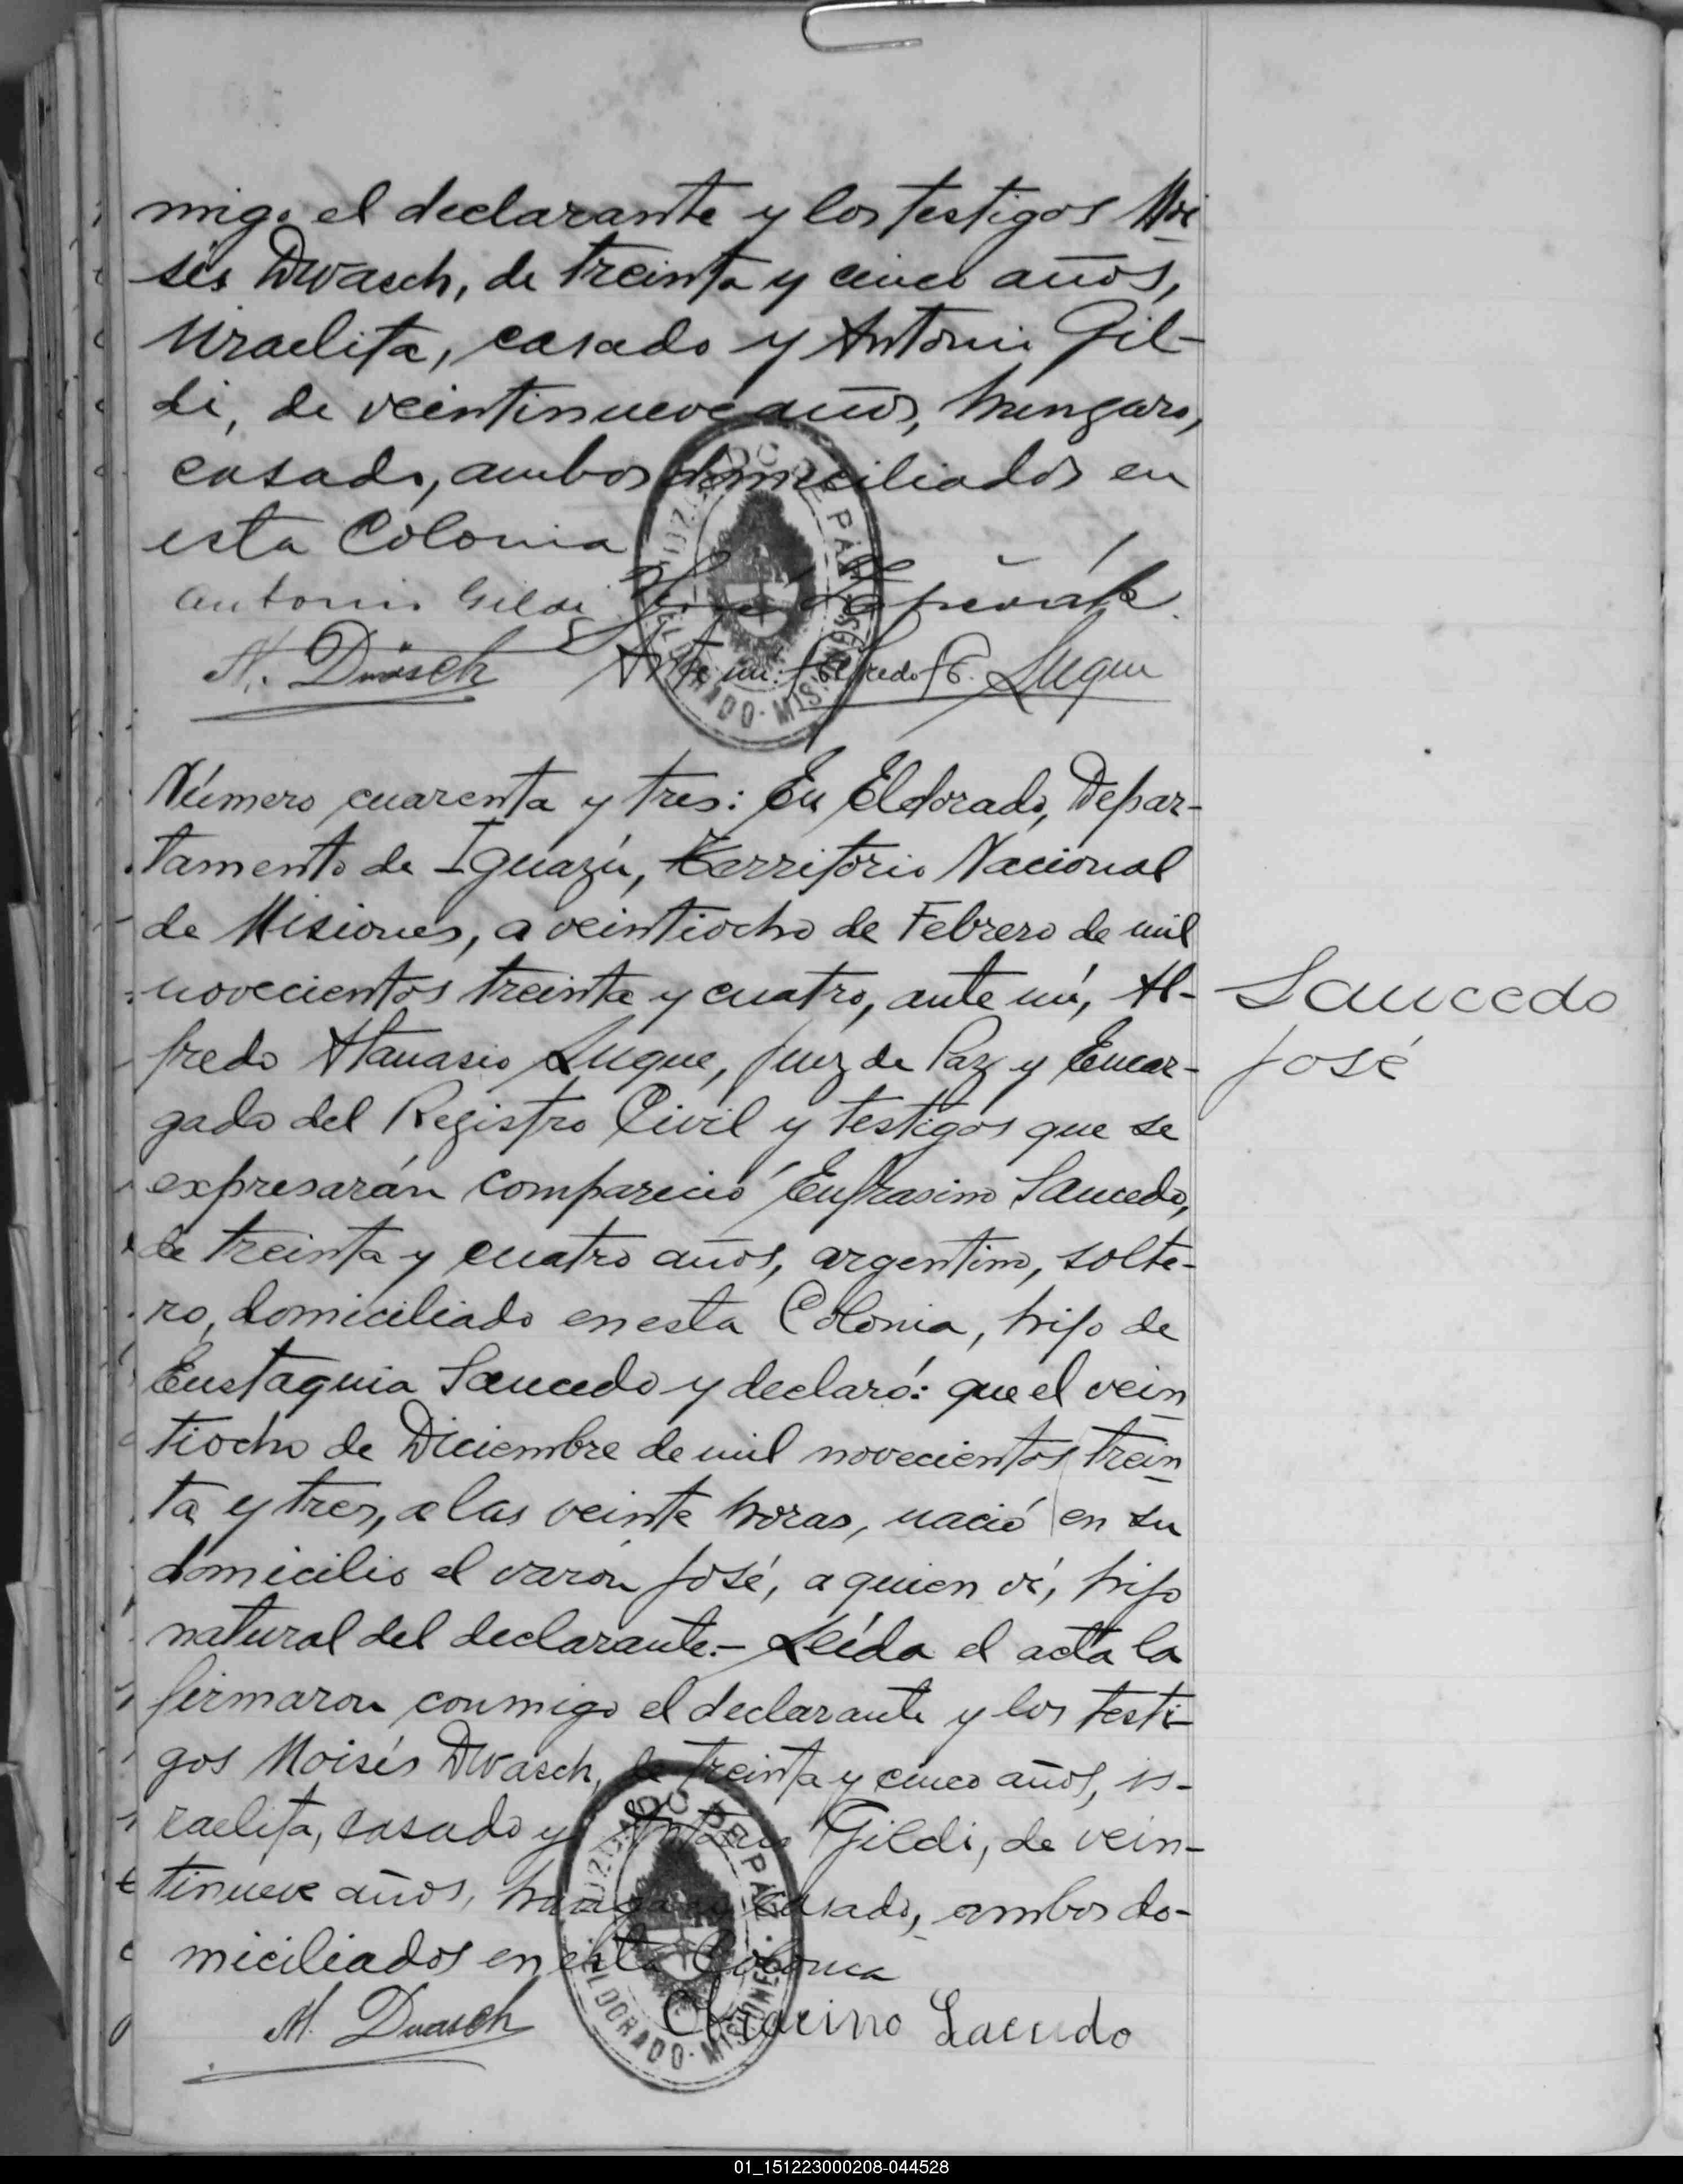 migo el declarante y los testigos Moi
sés Dwasch, de treinta y cinco años,
israelita, casado y Antonio Gil-
di, de veintinueve años, hungaro,
casado, ambos domiciliados en
esta Colonia
Antonio Gildi José
M. Dwasch Ante mi: Alfredo A. Luque
Número cuarenta y tres: En Eldorado, Depar-
tamento de Iguazú, Territorio Nacional
de Misiones, a veintiocho de Febrero de mil
novecientos treinta y cuatro, ante mí, Al-
fredo Atanasio Luque, Juez de Paz y Encar-
gado del Registro Civil y testigos que se
expresarán compareció Eufrasino Saucedo,
de treinta y cuatro años, argentino, solte-
ro, domiciliado en esta Colonia, hijo de
Eustaquia Saucedo y declaró: que el vein
tiocho de Diciembre de mil novecientos trein
ta y tres, a las veinte horas, nació en su
domicilio el varón José, a quien ví, hijo
natural del declarante.- Leída el acta la
firmaron conmigo el declarante y los testi-
gos Moisés Dwasch, de treinta y cinco años, is-
raelita, casado y Antonio Gildi, de vein-
tinueve años, hungaro, casado, ambos do-
miciliados en esta Colonia
M. Dwasch Saucedo
Saucedo
José
ELDORADO - MISIONES
ELDORADO - MISIONES
01_151223000208-044528